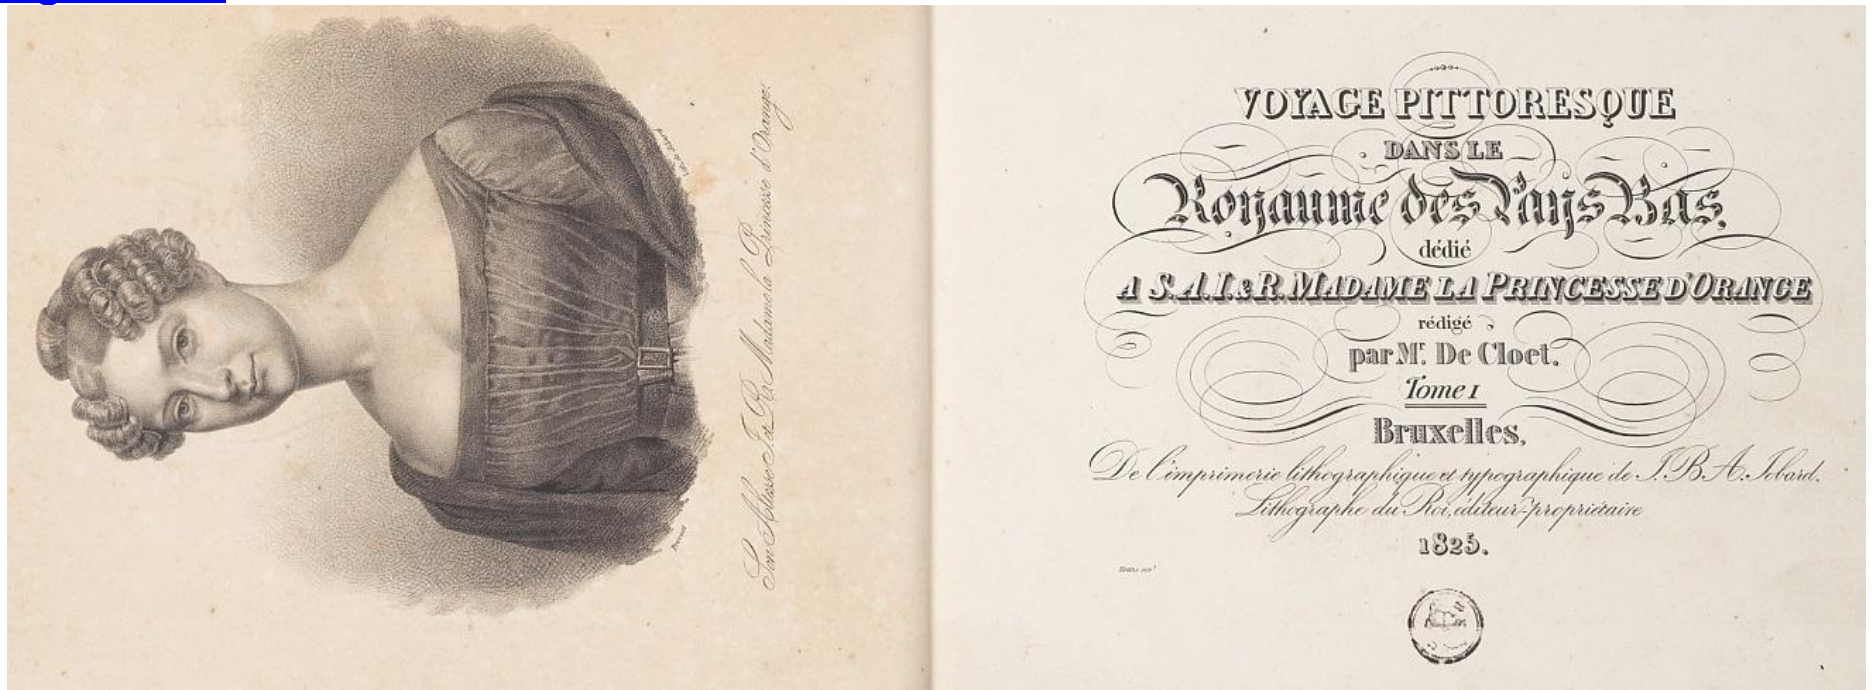 Son Altesse I. & R. Madame la Princesse d'Orange.
VOYAGE PITTORESQUE
DANS LE
Royaume des Pays Bas,
dédié
A S.A.I. & R. MADAME LA PRINCESSE D'ORANGE
rédigé
par Mr. De Cloet.
Tome I
Bruxelles,
De l'imprimerie lithographique et typographique de J. B. A. Jobard,
Lithographe du Roi, éditeur-propriétaire
1825.